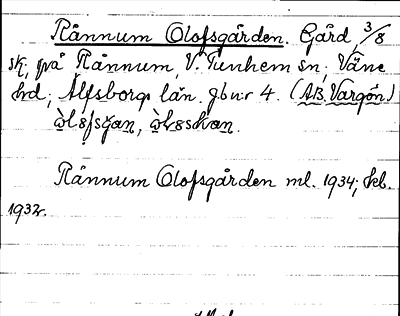 Rånnum Olofsgården. Gård 3/8
sk, på Rånnum, V. Tunhem sn; Väne
hd; Älfsborgs län. gbnr 4. (AB. Vargön)
Rånnum Olofsgården ml. 1934; kb.
1932.